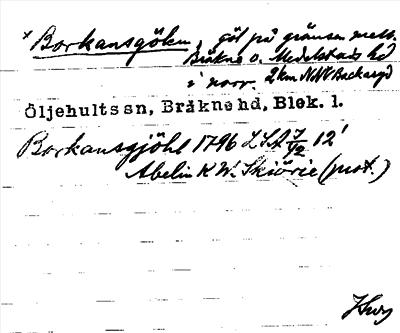 * Borkansgölen, göl på gränsen mell.
Bräkne o. Medelstads hd
i norr. 2km NNV Backaryd
Öljehultssn, Bräknehd, Blek. l.
Borkansgjöhl 1796 LSA 7/42 12'
Abelin K W. Skiörie (prot.)